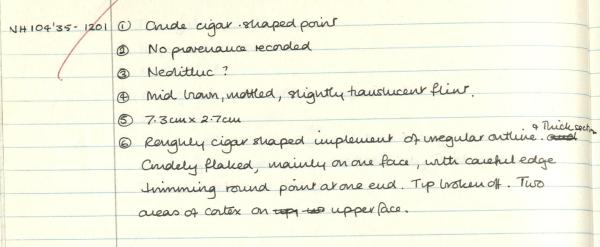 NH 104'35 - 1201 ① Crude cigar-shaped point
② No provenance recorded
③ Neolithic ?
④ Mid brown, mottled, slightly translucent flint.
⑤ 7.3cm x 2.7cm
⑥ Roughly cigar shaped implement of irregular outline & thick section.
Crudely flaked, mainly on one face, with careful edge
trimming round point at one end. Tip broken off. Two
areas of cortex on upper face.